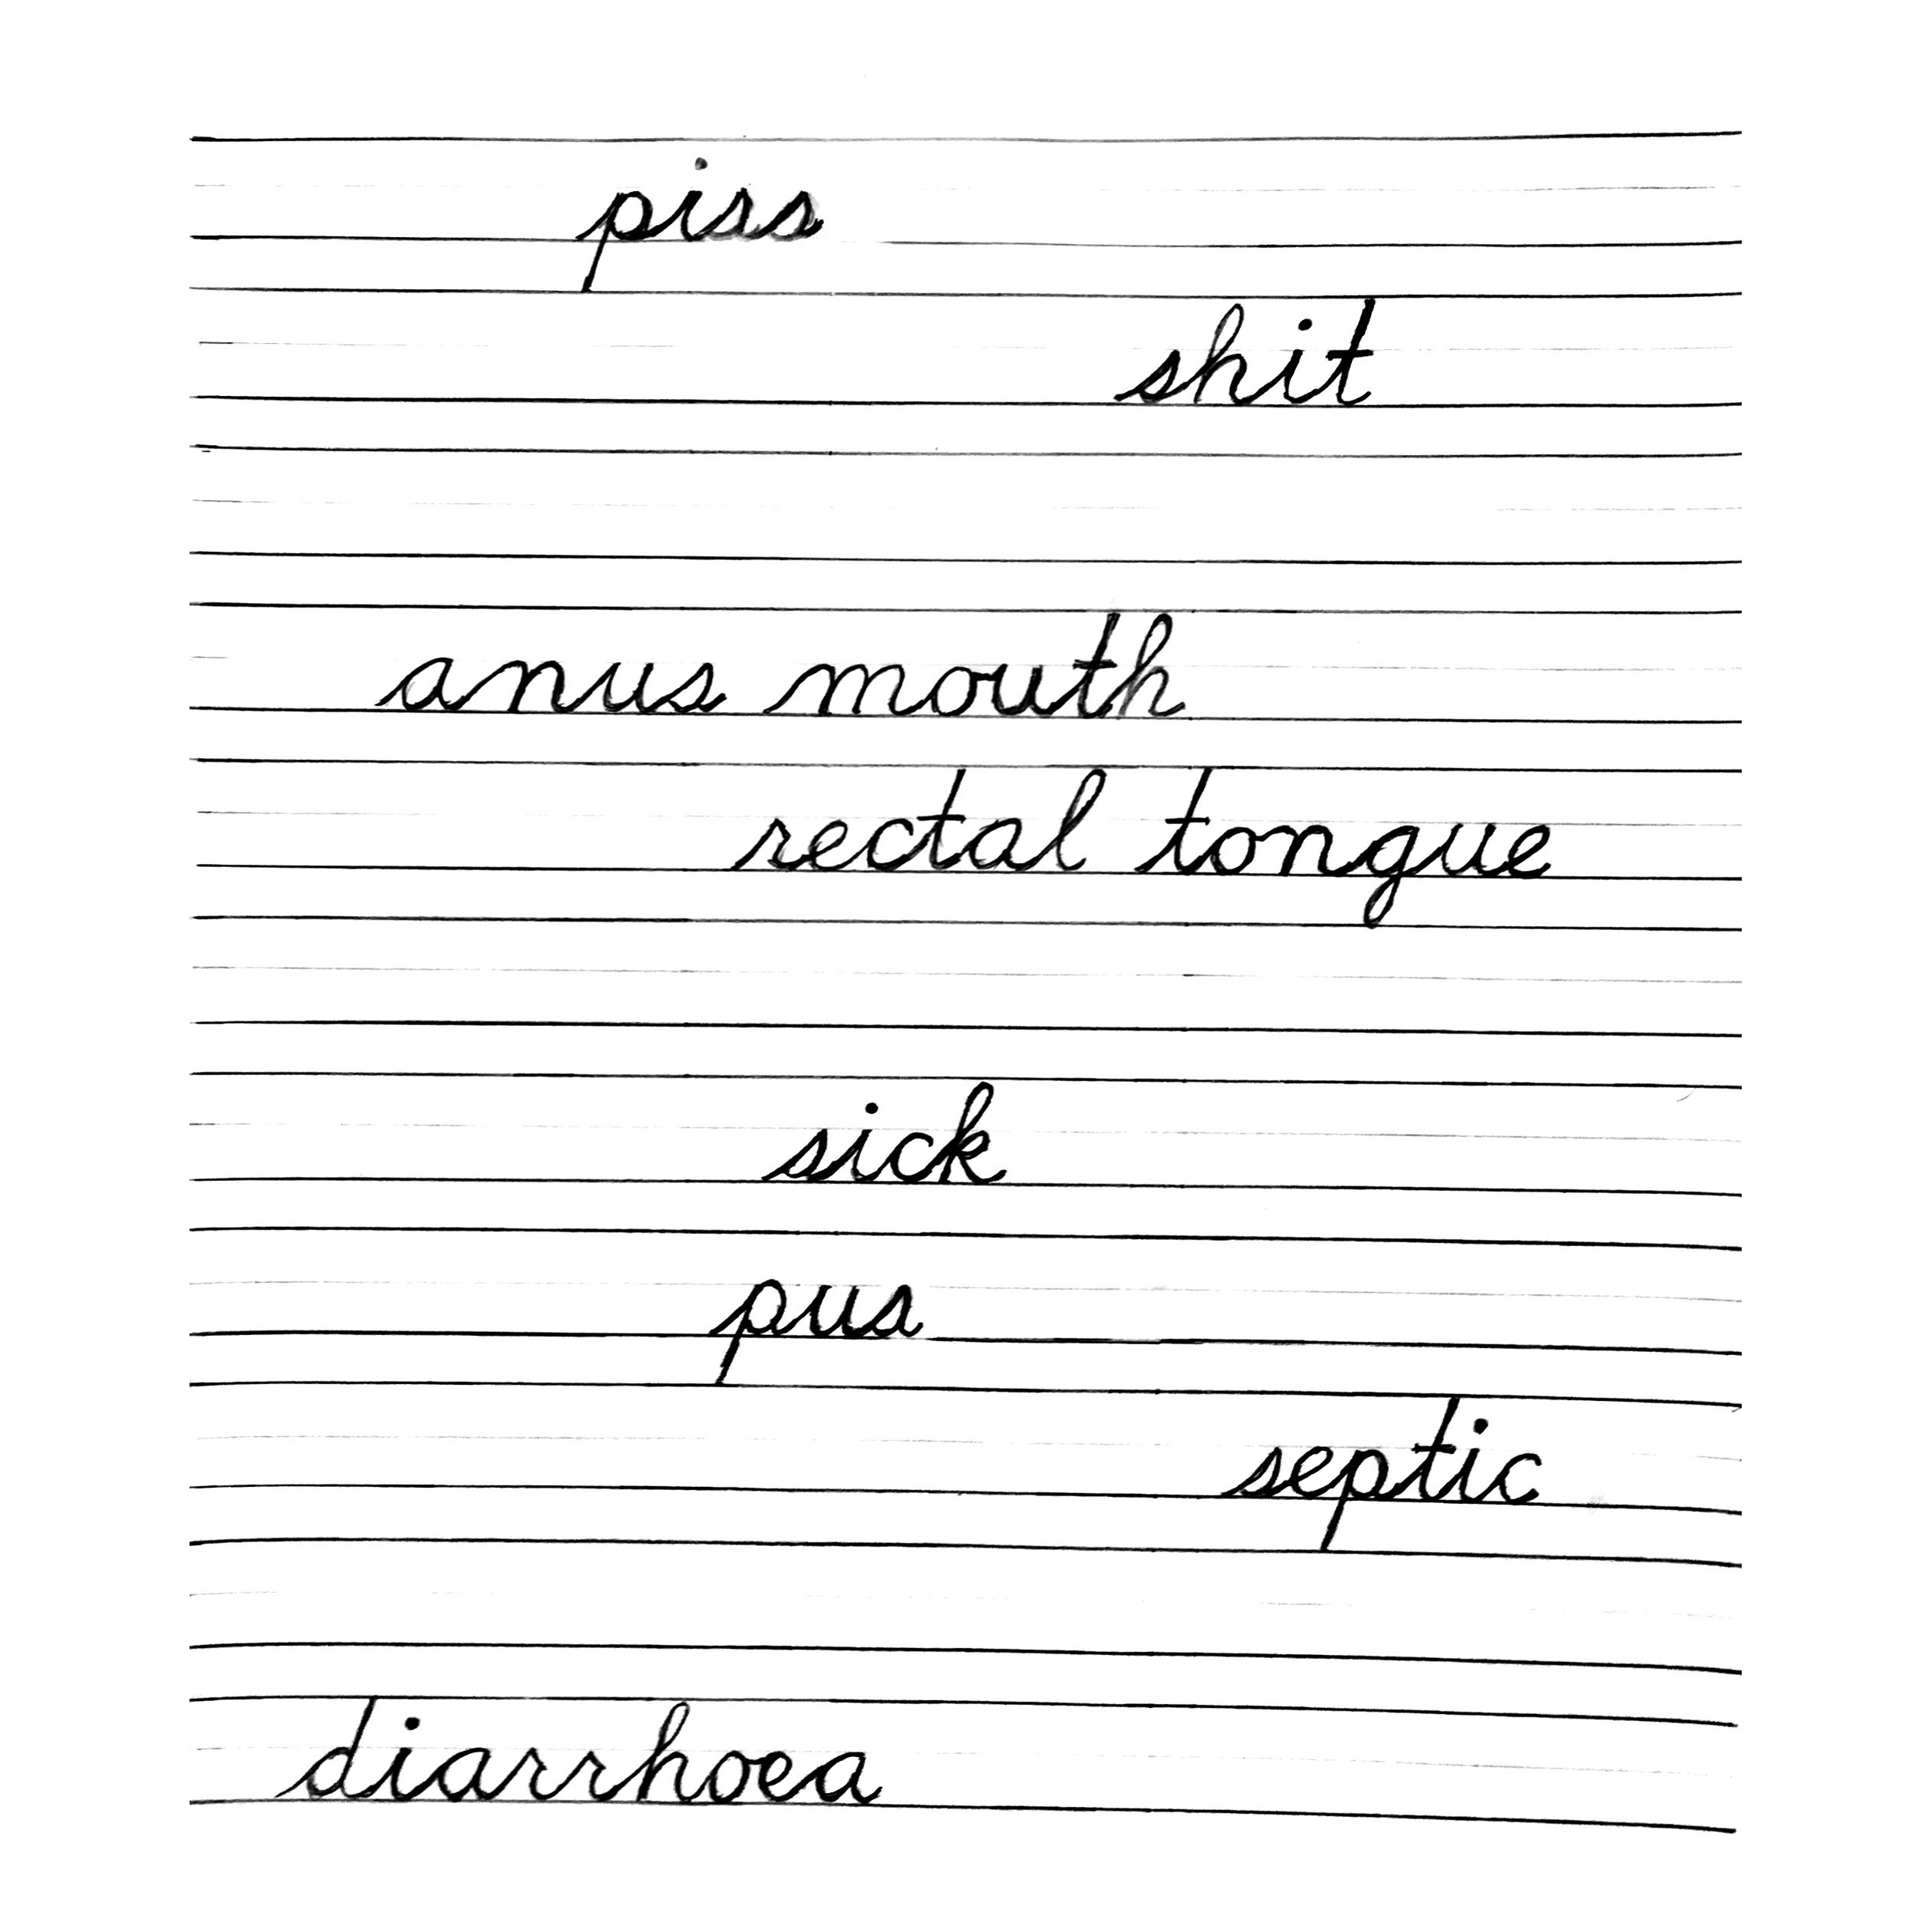 piss
shit
anus mouth
rectal tongue
sick
pus
septic
diarrhoea